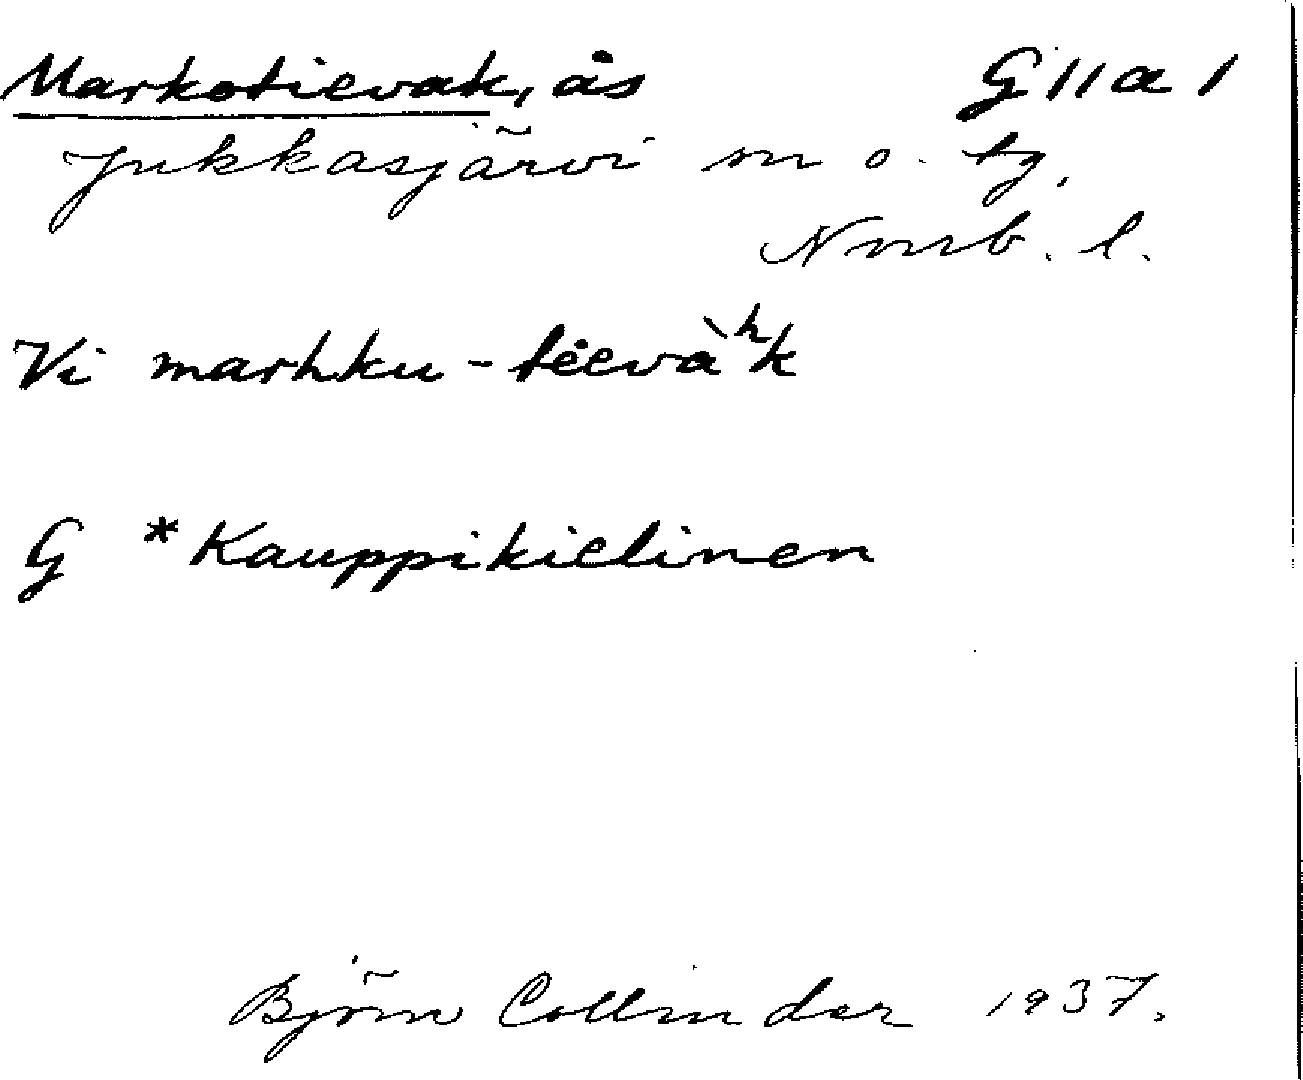 Markotievak, ås G 11 a 1
Jukkasjärvi sn o. tg.
Norrb. l.
Vi marhku-tievàʰk
G *Kauppikielinen
Björn Collinder 1937.